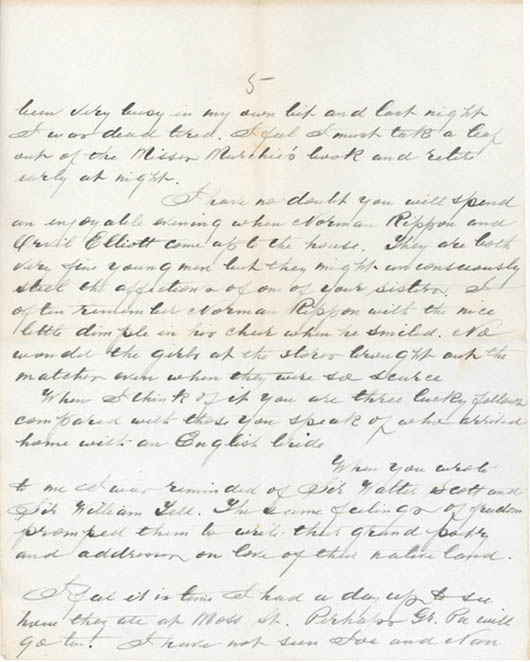 5-
been very busy in my own bit and last night
I was dead tired. I feel I must take a leaf
out of the Misses Murchie's book and retire
early at night.
I have no doubt you will spend
an enjoyable evening when Norman Rippon and
Orvil Elliott come up to the house. They are both
very fine young men but they might unconsciously
steal the affections of one of your sisters. I
often remember Norman Rippon with the nice
little dimple in his cheek when he smiled. No
wonder the girls at the stores brought out the
matches even when they were so scarce
When I think of it you are three lucky fellows
compared with those you speak of who arrived
home with an English bride
When you wrote
to me I was reminded of Sir Walter Scott and
Sir William Tell. The same feelings of freedom
promped them to write their grand poetry
and addresses on love of their native land.
I feel it is time I had a day up to see
how they are at Moss St. Perhaps Gr. Pa will
go too. I have not seen Joe and Nan